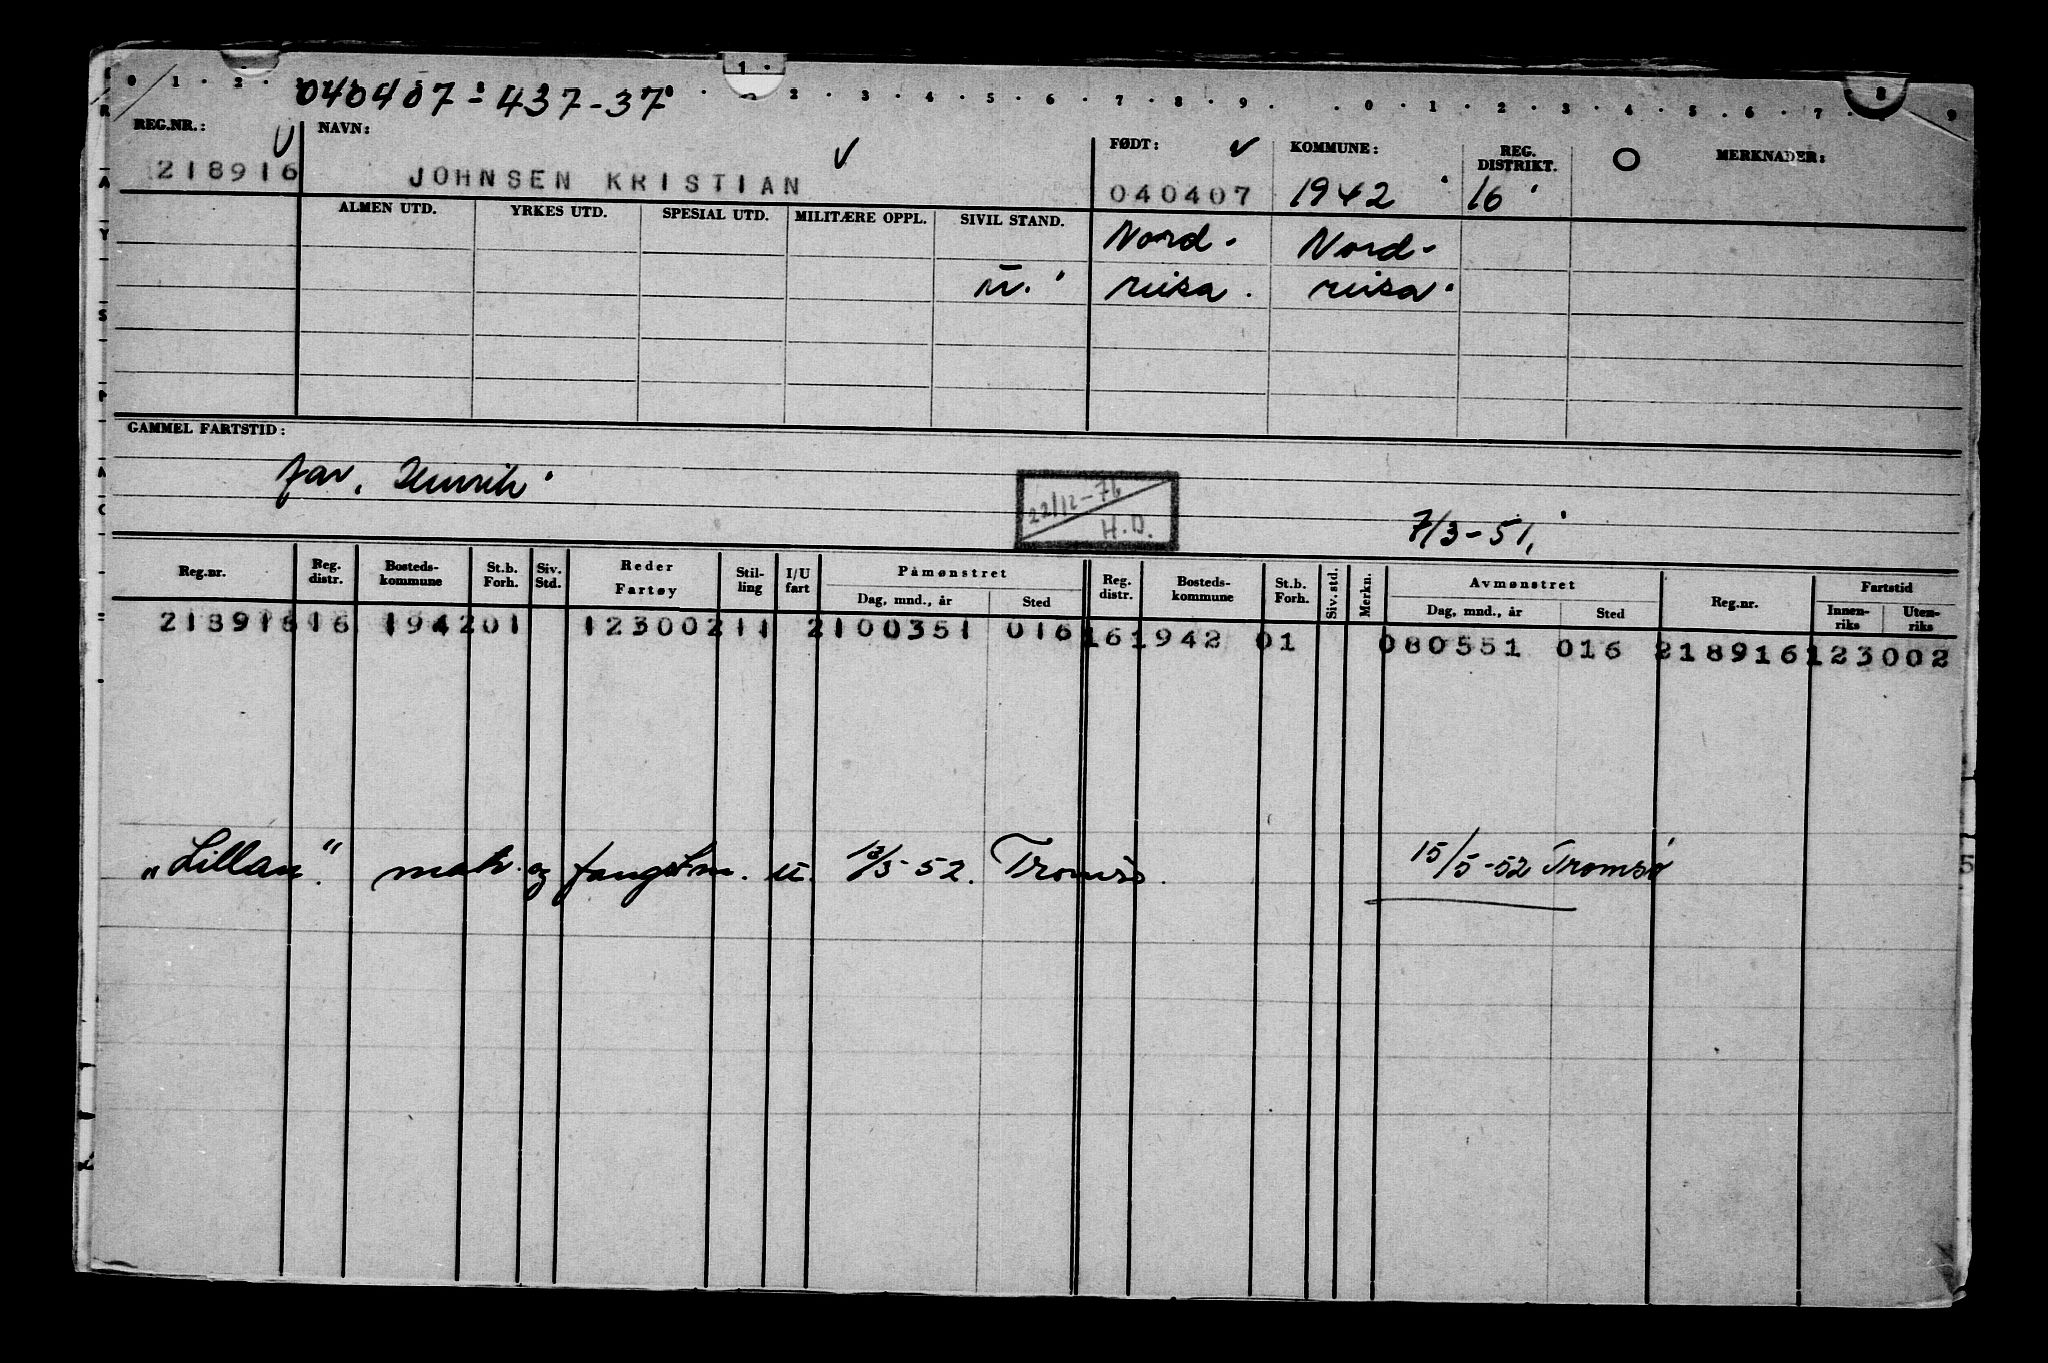 0 1 2 040407-437-37 1 2 3 4 5 6 7 8 9 0 1 2 3 4 5 6 7 8 9
REG.NR.: NAVN: FØDT: KOMMUNE: REG. DISTRIKT. O MERKNADER:
218916 JOHNSEN KRISTIAN 040407 1942 16
ALMEN UTD. YRKES UTD. SPESIAL UTD. MILITÆRE OPPL. SIVIL STAND. Nord- Nord-
u. reisa. reisa.
GAMMEL FARTSTID:
far, Henrik
22/12-76
H.D.
7/3-51,
Reg.nr. Reg. distr. Bosteds-kommune St.b. Forh. Siv. Std. Reder Fartøy Stil-ling I/U fart Påmønstret Reg. distr. Bosteds-kommune St.b. Forh. Siv. std. Merkn. Avmønstret Reg.nr. Fartstid
Dag, mnd., år Sted Dag, mnd., år Sted Innen-riks Uten-riks
218916 16 1942 01 123002 11 2 100351 016 16 1942 01 080551 016 218916 123002
„Lillan". mask. og fangstm. u. 13/3-52. Tromsø. 15/5-52 Tromsø